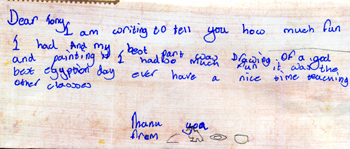 Dear Tony
I am writing to tell you how much fun
I had And my best part was Drawing Of a god
and painting it I had so much fun it was the
best egyption day ever have a nice time teaching
other classes
Thank you
from